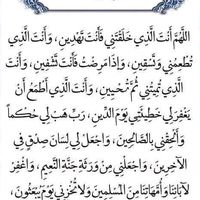 اللَّهُمَّ أَنْتَ الَّذِي خَلَقْتَنِي فَأَنْتَ تَهْدِينِ، وَأَنْتَ الَّذِي
تُطْعِمُنِي وَتَسْقِينِ، وَإِذَا مَرِضْتُ فَأَنْتَ تَشْفِينِ، وَأَنْتَ
الَّذِي تُمِيتُنِي ثُمَّ تُحْيِينِ، وَأَنْتَ الَّذِي أَطْمَعُ أَنْ
يَغْفِرَ لِي خَطِيئَتِي يَوْمَ الدِّينِ، رَبِّ هَبْ لِي حُكْماً
وَأَلْحِقْنِي بِالصَّالِحِينَ، وَاجْعَلْ لِي لِسَانَ صِدْقٍ فِي
الآخِرِينَ، وَاجْعَلْنِي مِنْ وَرَثَةِ جَنَّةِ النَّعِيمِ، وَاغْفِرْ
لآبَائِنَا وَأُمَّهَاتِنَا مِنَ الْمُسْلِمِينَ وَلَا تُخْزِنِي يَوْمَ يُبْعَثُونَ،